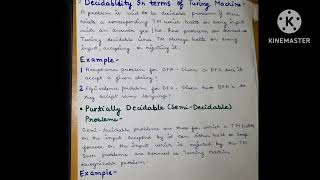 Decidability In terms of Turing Machine-
A problem is said to be decidable problem if there
exists a corresponding TM which halts on every input
with an answer yes/no. These problems are termed as
Turing decidable since TM always halts on every
input, accepting or rejecting it.
Example-
1 Acceptance problem for DFA - Given a DFA does it
accept a given string?
2 Equivalence problem for DFA - Given two DFA's do
they accept same language?
• Partially Decidable (Semi-Decidable)
Problems-
Semi-decidable problems are those for which a TM halts
on the input accepted by it can either halt or loop
forever on the input which is rejected by the TM
Such problems are termed as Turing Machine
recognizable problem-
Example-
KINEMASTER